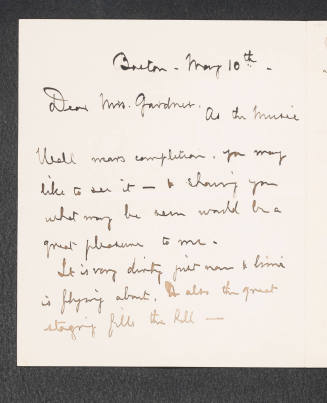 Boston - May 10th -
Dear Mrs. Gardner.
As the Music
Hall nears completion, you may
like to see it — & showing you
what may be seen would be a
great pleasure to me.
It is very dirty just now & lime
is flying about. & also the great
staging fills the Hall —